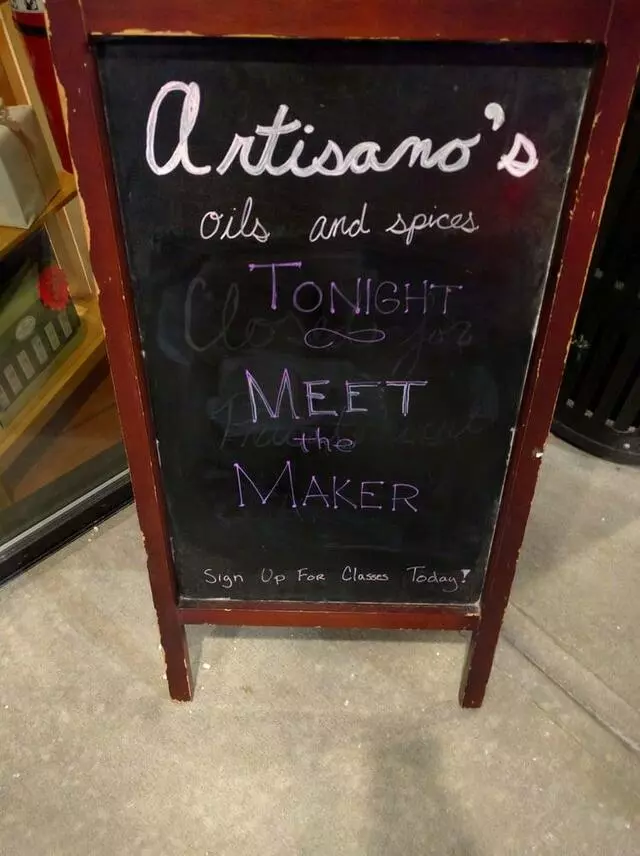 Artisano's
oils and spices
TONIGHT
MEET
the
MAKER
Sign Up For Classes Today!